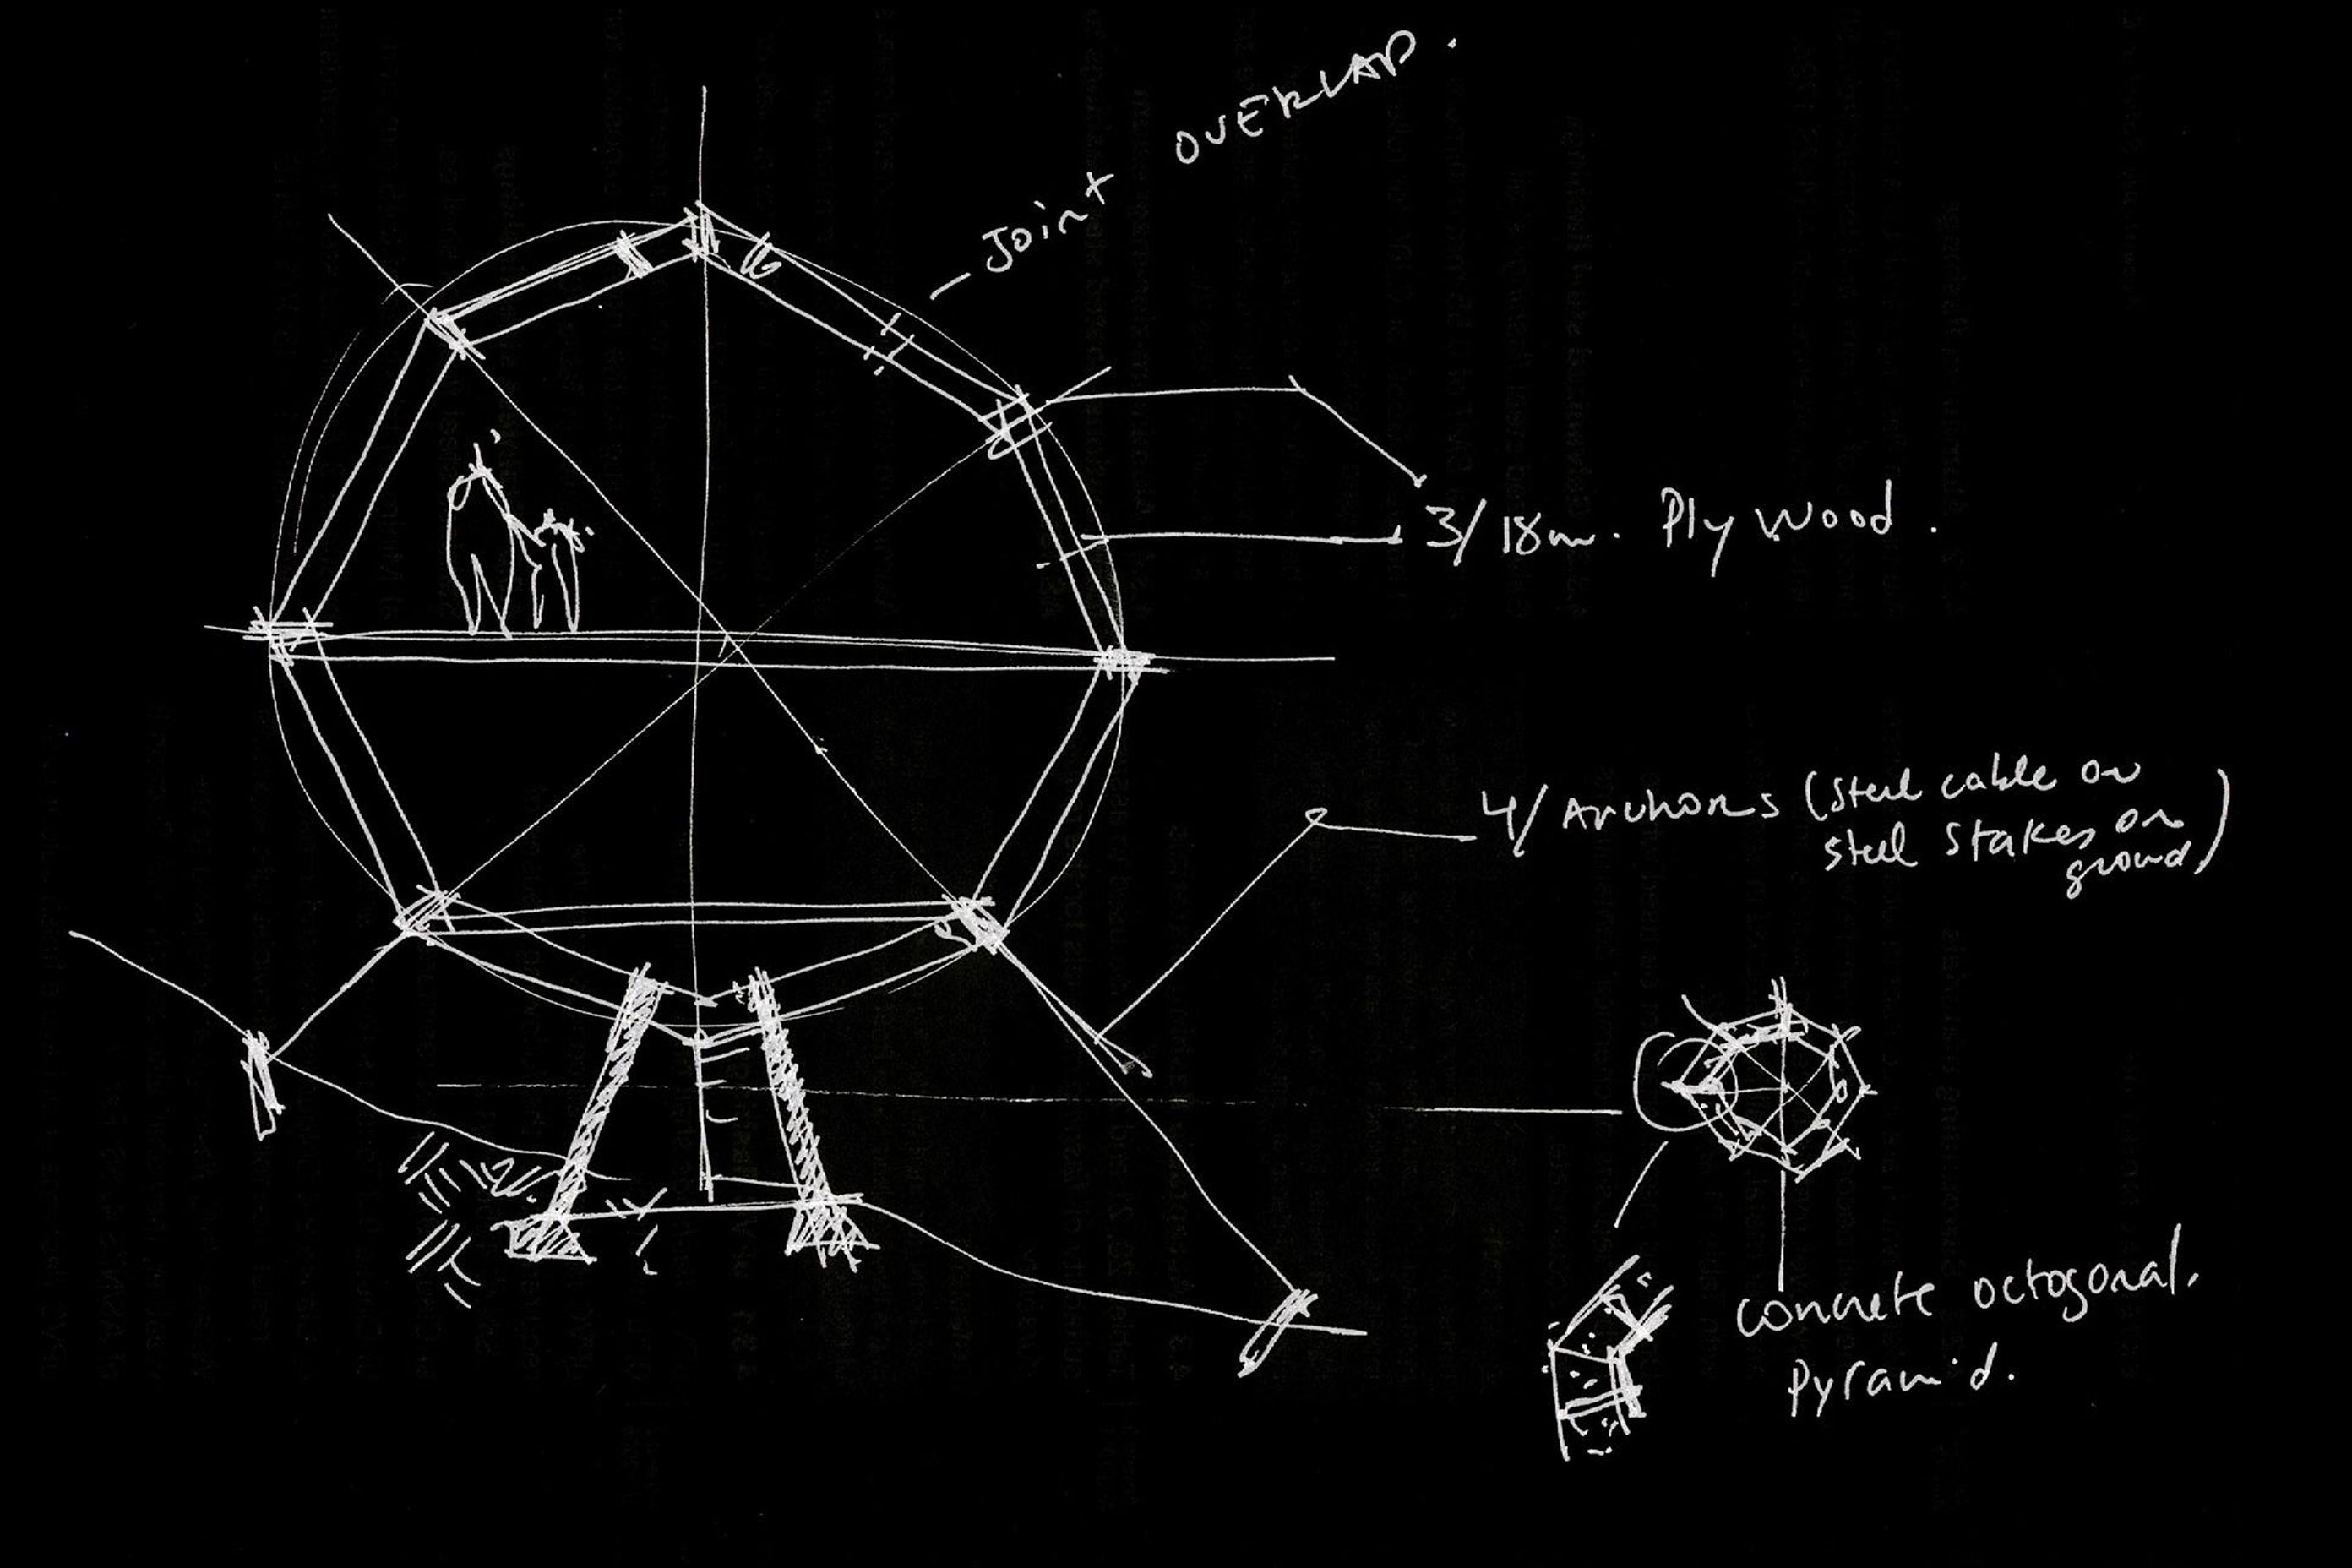 - Joint OVERLAP.
3/18m. Plywood.
4/ Anchors (Steel cable on
steel stakes on
ground)
concrete octogonal.
pyramid.